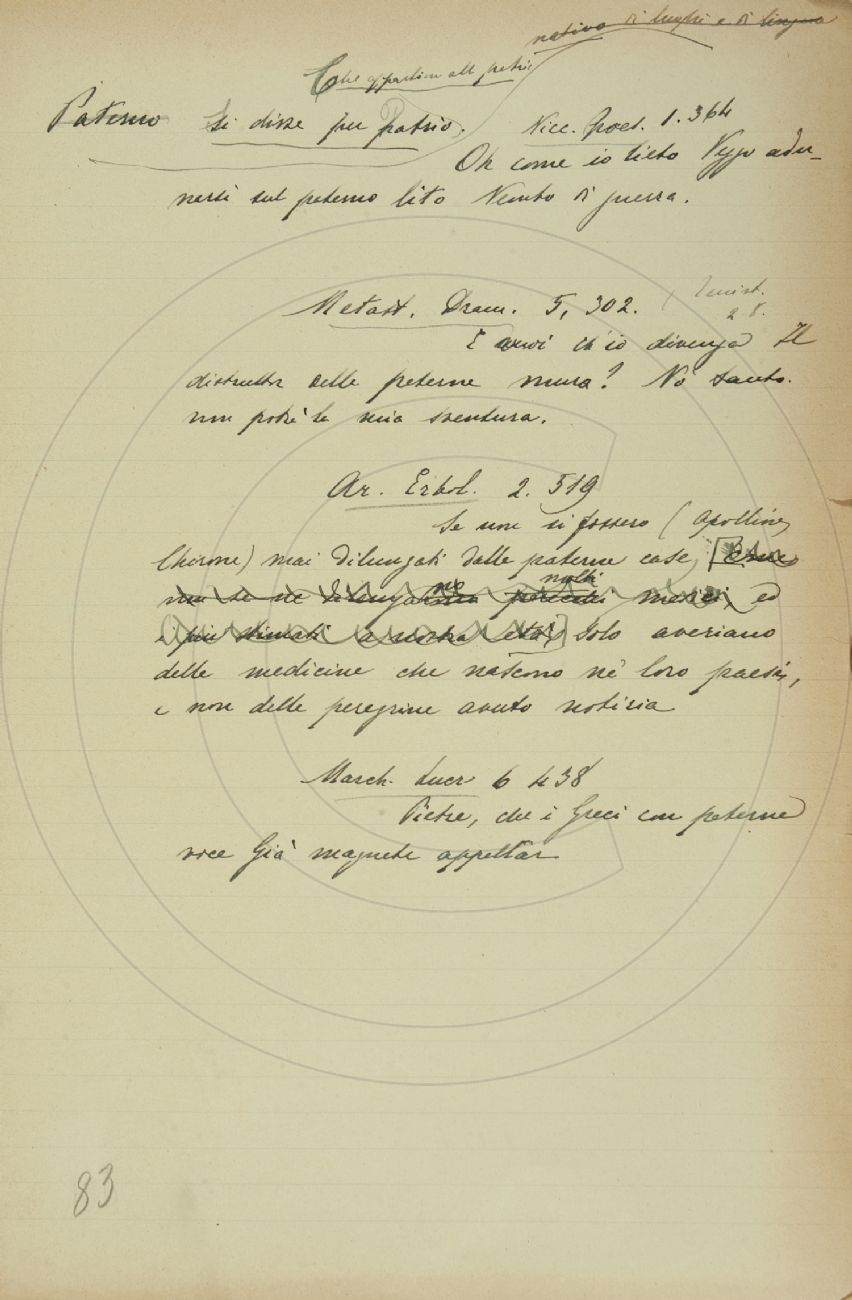 nativo di luoghi e di lingua
Che appartiene alla patria
Paterno Si disse per Patrio. Nicc. Poes. 1. 364
Oh come io lieto Veggo adu-
narsi sul paterno lito Nembo di guerra.
Metast. Dram. 5, 302. Temist. 2 8.
E vuoi ch'io divenga Il
distruttor delle paterne mura? No tanto
non potrè la mia sventura.
Ar. Erbol. 2. 519
Se non si fossero (Apolline,
Chirone) mai dilungati dalle paterne case, [Come
non se ne dilungano molti medici, ed
i più stimati a nostra età,] solo averiano
delle medicine che nascono nè loro paesi,
e non delle peregrine avuto notizia
March. Lucr 6 438
Pietre, che i Greci con paterne
voce Già magnete appellar
83